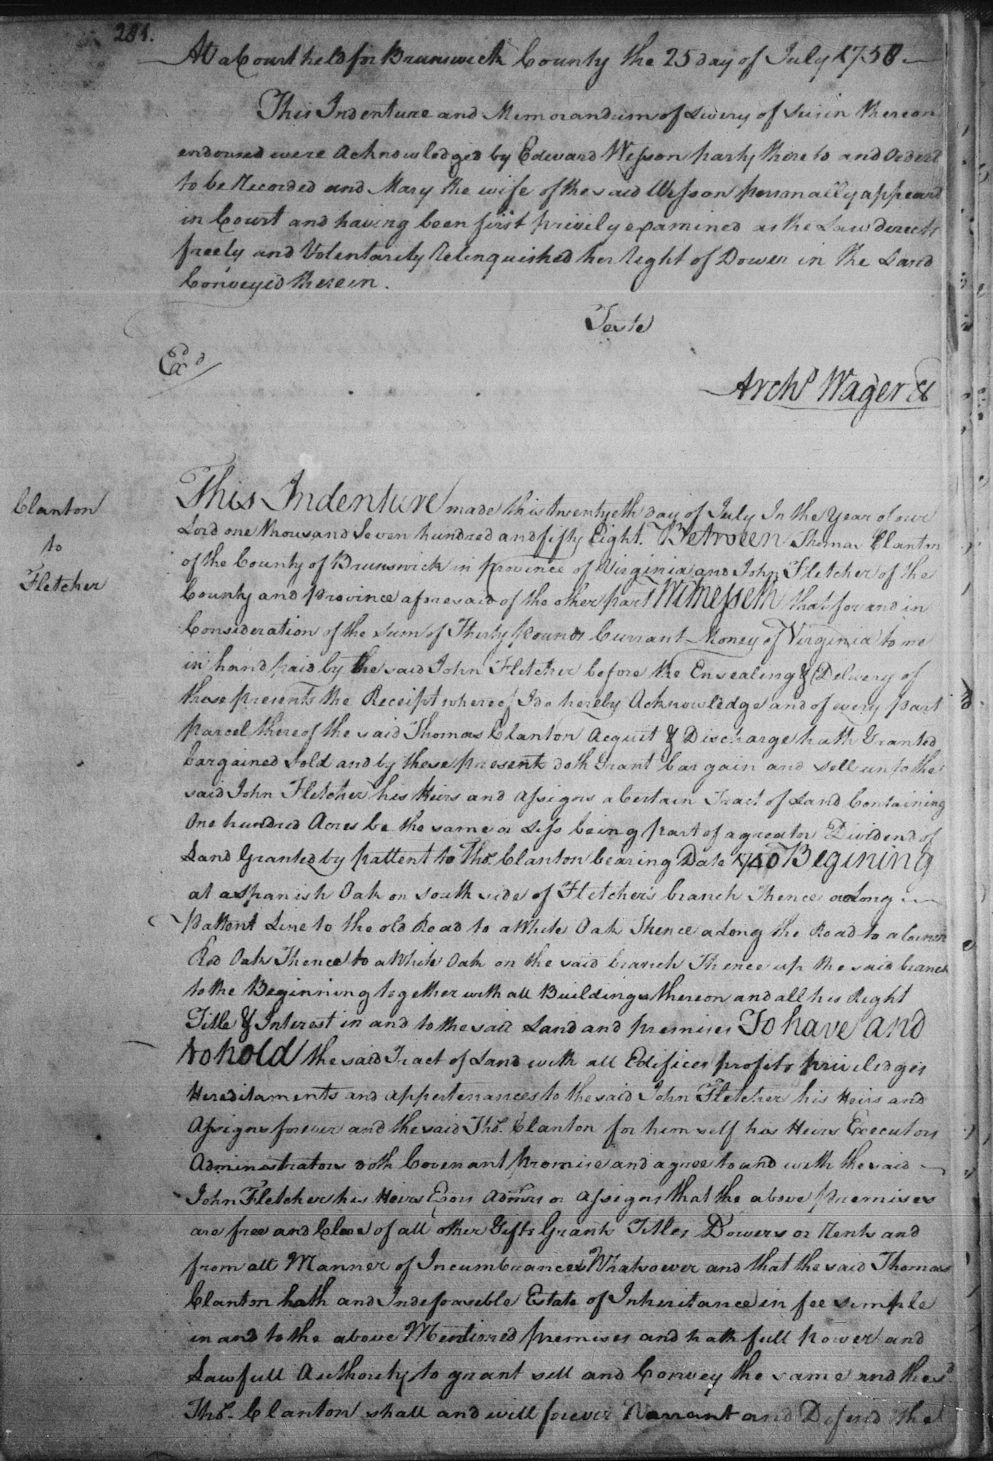 281.
At a Court held for Brunswick County the 25 day of July 1758
This Indenture and Memorandum of Livery of Seisin thereon
endorsed were Acknowledged by Edward Wesson party thereto and Orderd
to be Recorded and Mary the wife of the said Wesson personally appeard
in Court and having been first privily examined as the Law directs
freely and Voluntarily Relinquished her Right of Dower in the Land
Conveyed therein.
Teste
Exd
Archd Wager Cl
Clanton
to
Fletcher
This Indenture made this twentyeth day of July In the Year of our
Lord one thousand Seven hundred and fifty Eight. Between Thomas Clanton
of the County of Brunswick in province of Virginia and John Fletcher of the
County and province aforesaid of the other part Witnesseth that for and in
Consideration of the sum of Thirty pounds Currant Money of Virginia to me
in hand paid by the said John Fletcher before the Ensealing & Delivery of
these presents the Receipt whereof I do hereby Acknowledge and of every part
parcel thereof the said Thomas Clanton Acquit & Discharge hath Granted
bargained Sold and by these present doth Grant bargain and sell unto the
said John Fletcher his Heirs and Assigns a Certain Tract of Land Containing
One hundred Acres be the same or Less being part of a greater Dividend of
Land Granted by pattent to Thos. Clanton bearing Date 1740 Begining
at a Spanish Oak on South side of Fletcher's branch Thence along
pattent Line to the old Road to a White Oak Thence along the Road to a Corner
Red Oak Thence to a White Oak on the said branch Thence up the said branch
to the Beginning together with all Buildings thereon and all his Right
Title & Interest in and to the said Land and premises To have and
to hold the said Tract of Land with all Edifices profits priviledges
Hereditaments and appertenances to the said John Fletcher his Heirs and
Assigns forever and the said Thos. Clanton for him self his Heirs Executors
Administrators doth Covenant promise and agree to and with the said
John Fletcher his Heirs Exors Admrs or Assigns that the above premises
are free and Clear of all other Gifts Grants Titles Dowers or Rents and
from all Manner of Incumbrances Whatsoever and that the said Thomas
Clanton hath and Indefeasible Estate of Inheritance in fee simple
in and to the above Mentioned premises and hath full power and
Lawfull Authority to grant sell and Convey the same and the sd
Thos. Clanton shall and will forever Warrant and Defend the